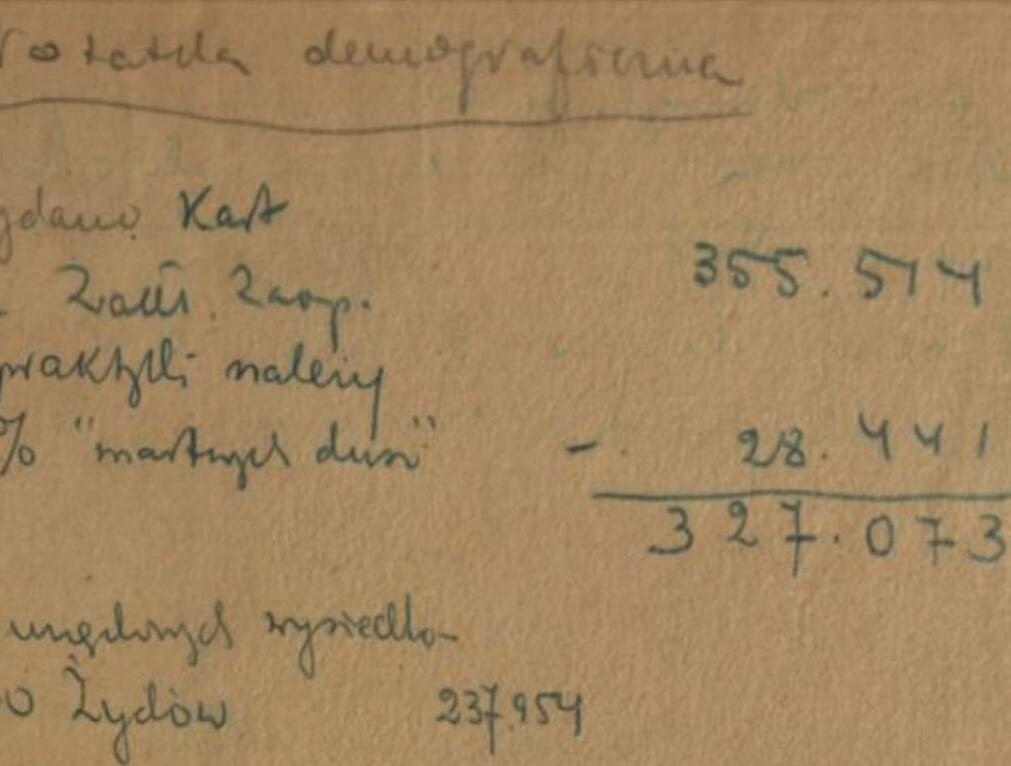 Notatka demograficzna
ydano Kart
Zakł. Zaop. 355.514
praktyki należy
% "martwych dusz" - 28.441
327.073
urzędowych wysiedlo-
o Żydów 237.954